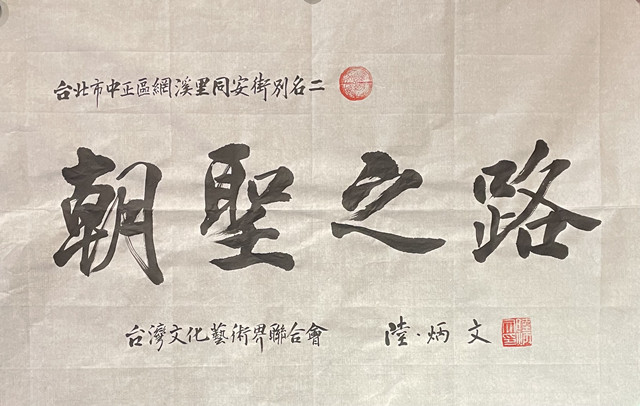 台北市中正區網溪里同安街別名二
朝聖之路
台灣文化藝術界聯合會 陸·炳文